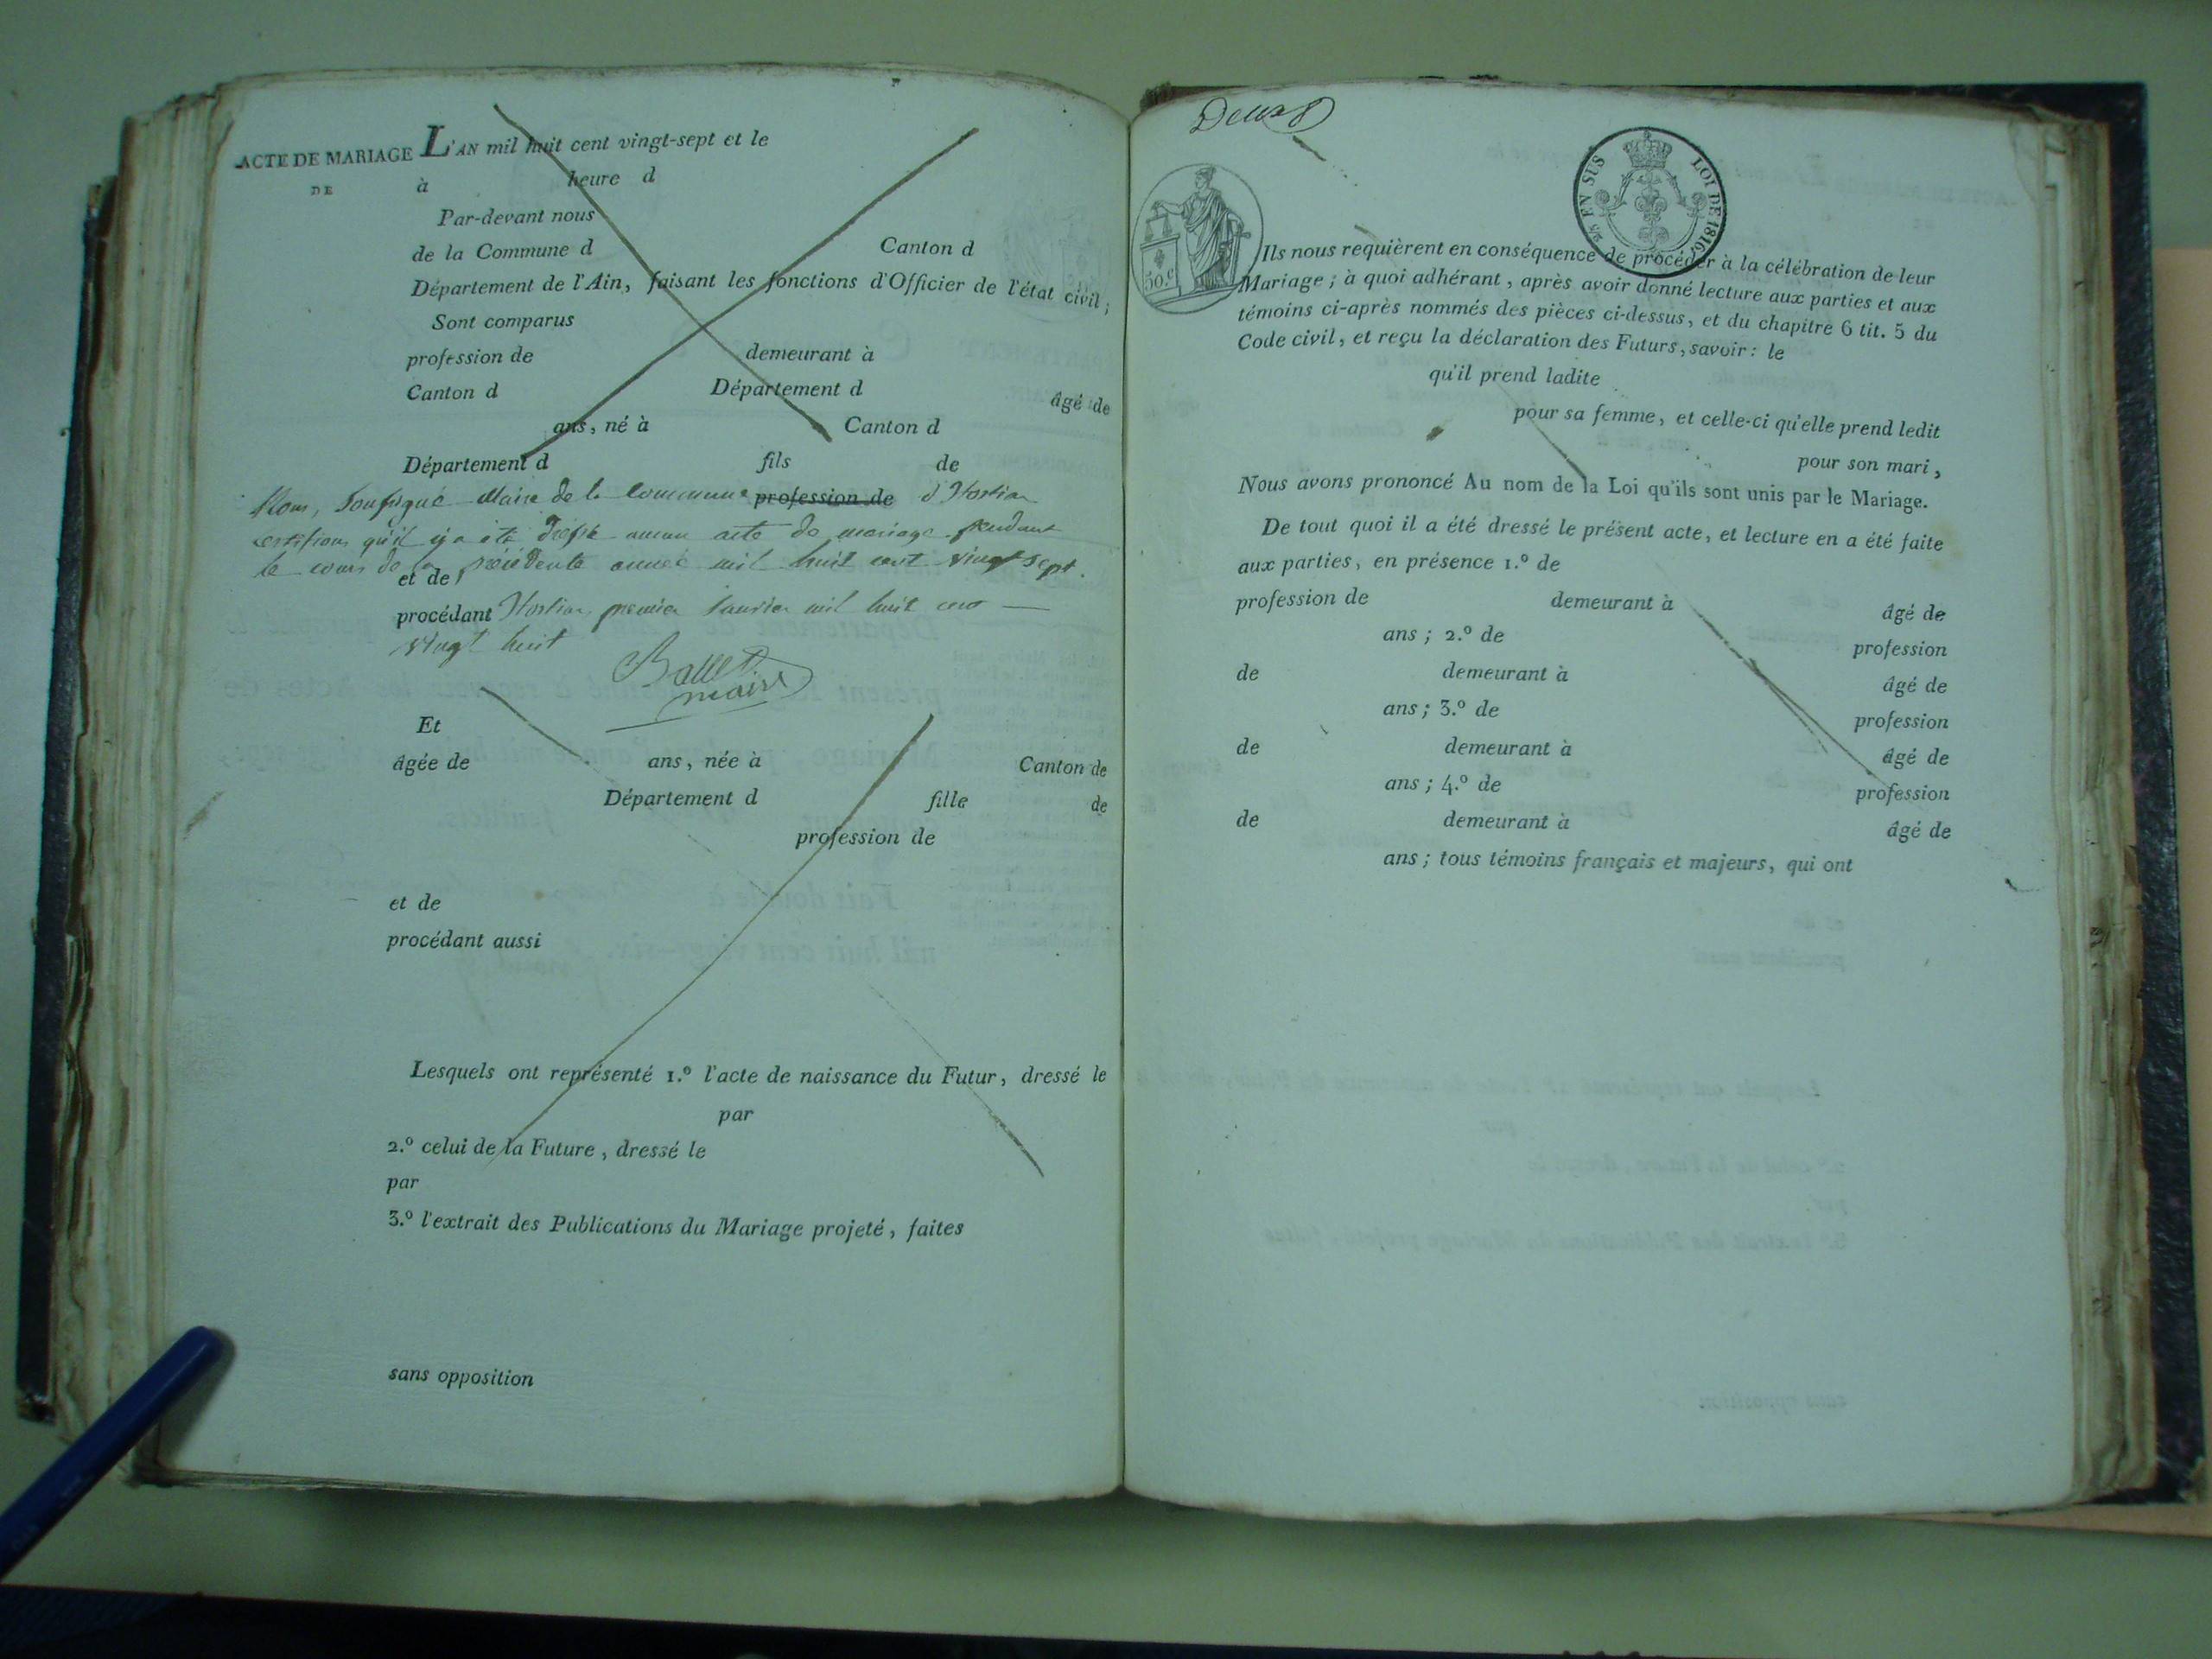 ACTE DE MARIAGE L'AN mil huit cent vingt-sept et le
DE à heure d
Par-devant nous
de la Commune d Canton d
Département de l'Ain, faisant les fonctions d'Officier de l'état civil;
Sont comparus
profession de demeurant à
Canton d Département d âgé de
ans, né à Canton d
Département d fils de
Nous, Soussigné Maire de la Commune profession de d'Hostian
certifions qu'il y a été dressé aucun acte de mariage pendant
le cours de la précédente année mil huit cent vingt sept.
et de
procédant Hostian premier Janvier mil huit cent
vingt huit
Ballet
maire
Et
âgée de ans, née à Canton de
Département d fille de
profession de
et de
procédant aussi
Lesquels ont représenté 1.º l'acte de naissance du Futur, dressé le
par
2.º celui de la Future, dressé le
par
3.º l'extrait des Publications du Mariage projeté, faites
sans opposition
Deux
EN SUS LOI DE 1816
50.c
Ils nous requièrent en conséquence de procéder à la célébration de leur
Mariage; à quoi adhérant, après avoir donné lecture aux parties et aux
témoins ci-après nommés des pièces ci-dessus, et du chapitre 6 tit. 5 du
Code civil, et reçu la déclaration des Futurs, savoir: le
qu'il prend ladite
pour sa femme, et celle-ci qu'elle prend ledit
pour son mari,
Nous avons prononcé Au nom de la Loi qu'ils sont unis par le Mariage.
De tout quoi il a été dressé le présent acte, et lecture en a été faite
aux parties, en présence 1.º de
profession de demeurant à âgé de
ans; 2.º de profession
de demeurant à âgé de
ans; 3.º de profession
de demeurant à âgé de
ans; 4.º de profession
de demeurant à âgé de
ans; tous témoins français et majeurs, qui ont